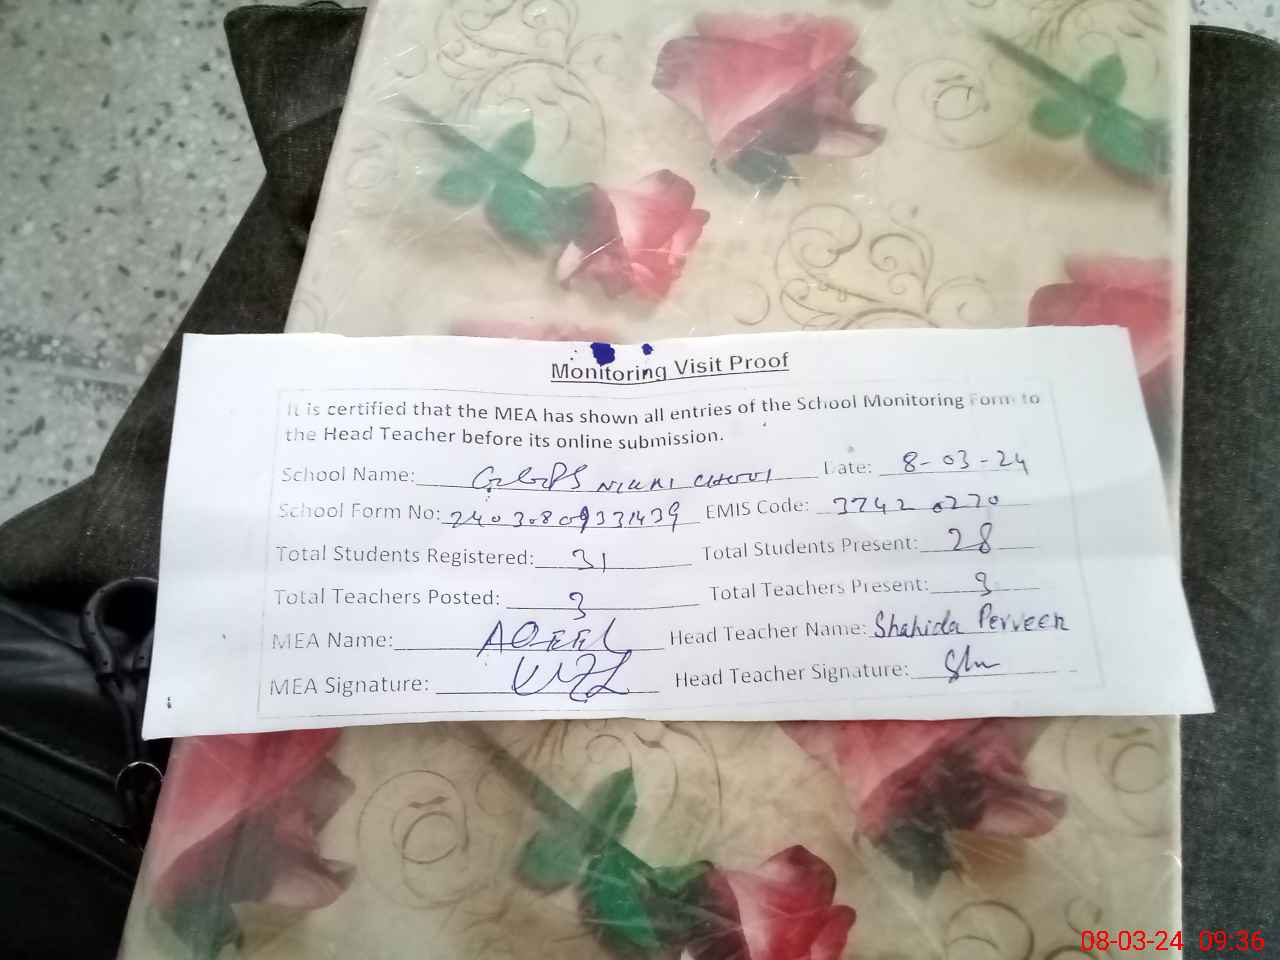 Monitoring Visit Proof
It is certified that the MEA has shown all entries of the School Monitoring Form to
the Head Teacher before its online submission.
School Name: GGPS Date: 8-03-24
School Form No: 24030809331439 EMIS Code: 37420270
Total Students Registered: 31 Total Students Present: 28
Total Teachers Posted: 3 Total Teachers Present: 3
MEA Name: AQEEL Head Teacher Name: Shahida Perveen
MEA Signature: Head Teacher Signature:
08-03-24 09:36